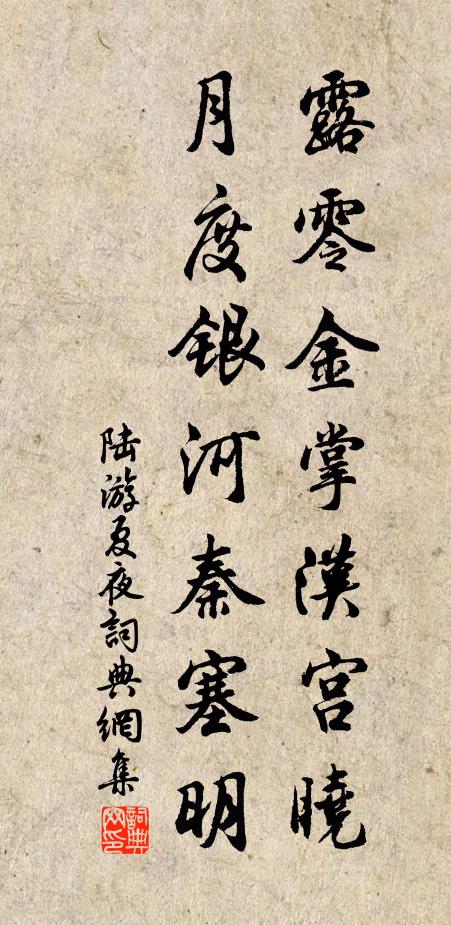 露零金掌漢宮曉
月度銀河秦塞明
陸游夏夜詞典網集
詞典網印